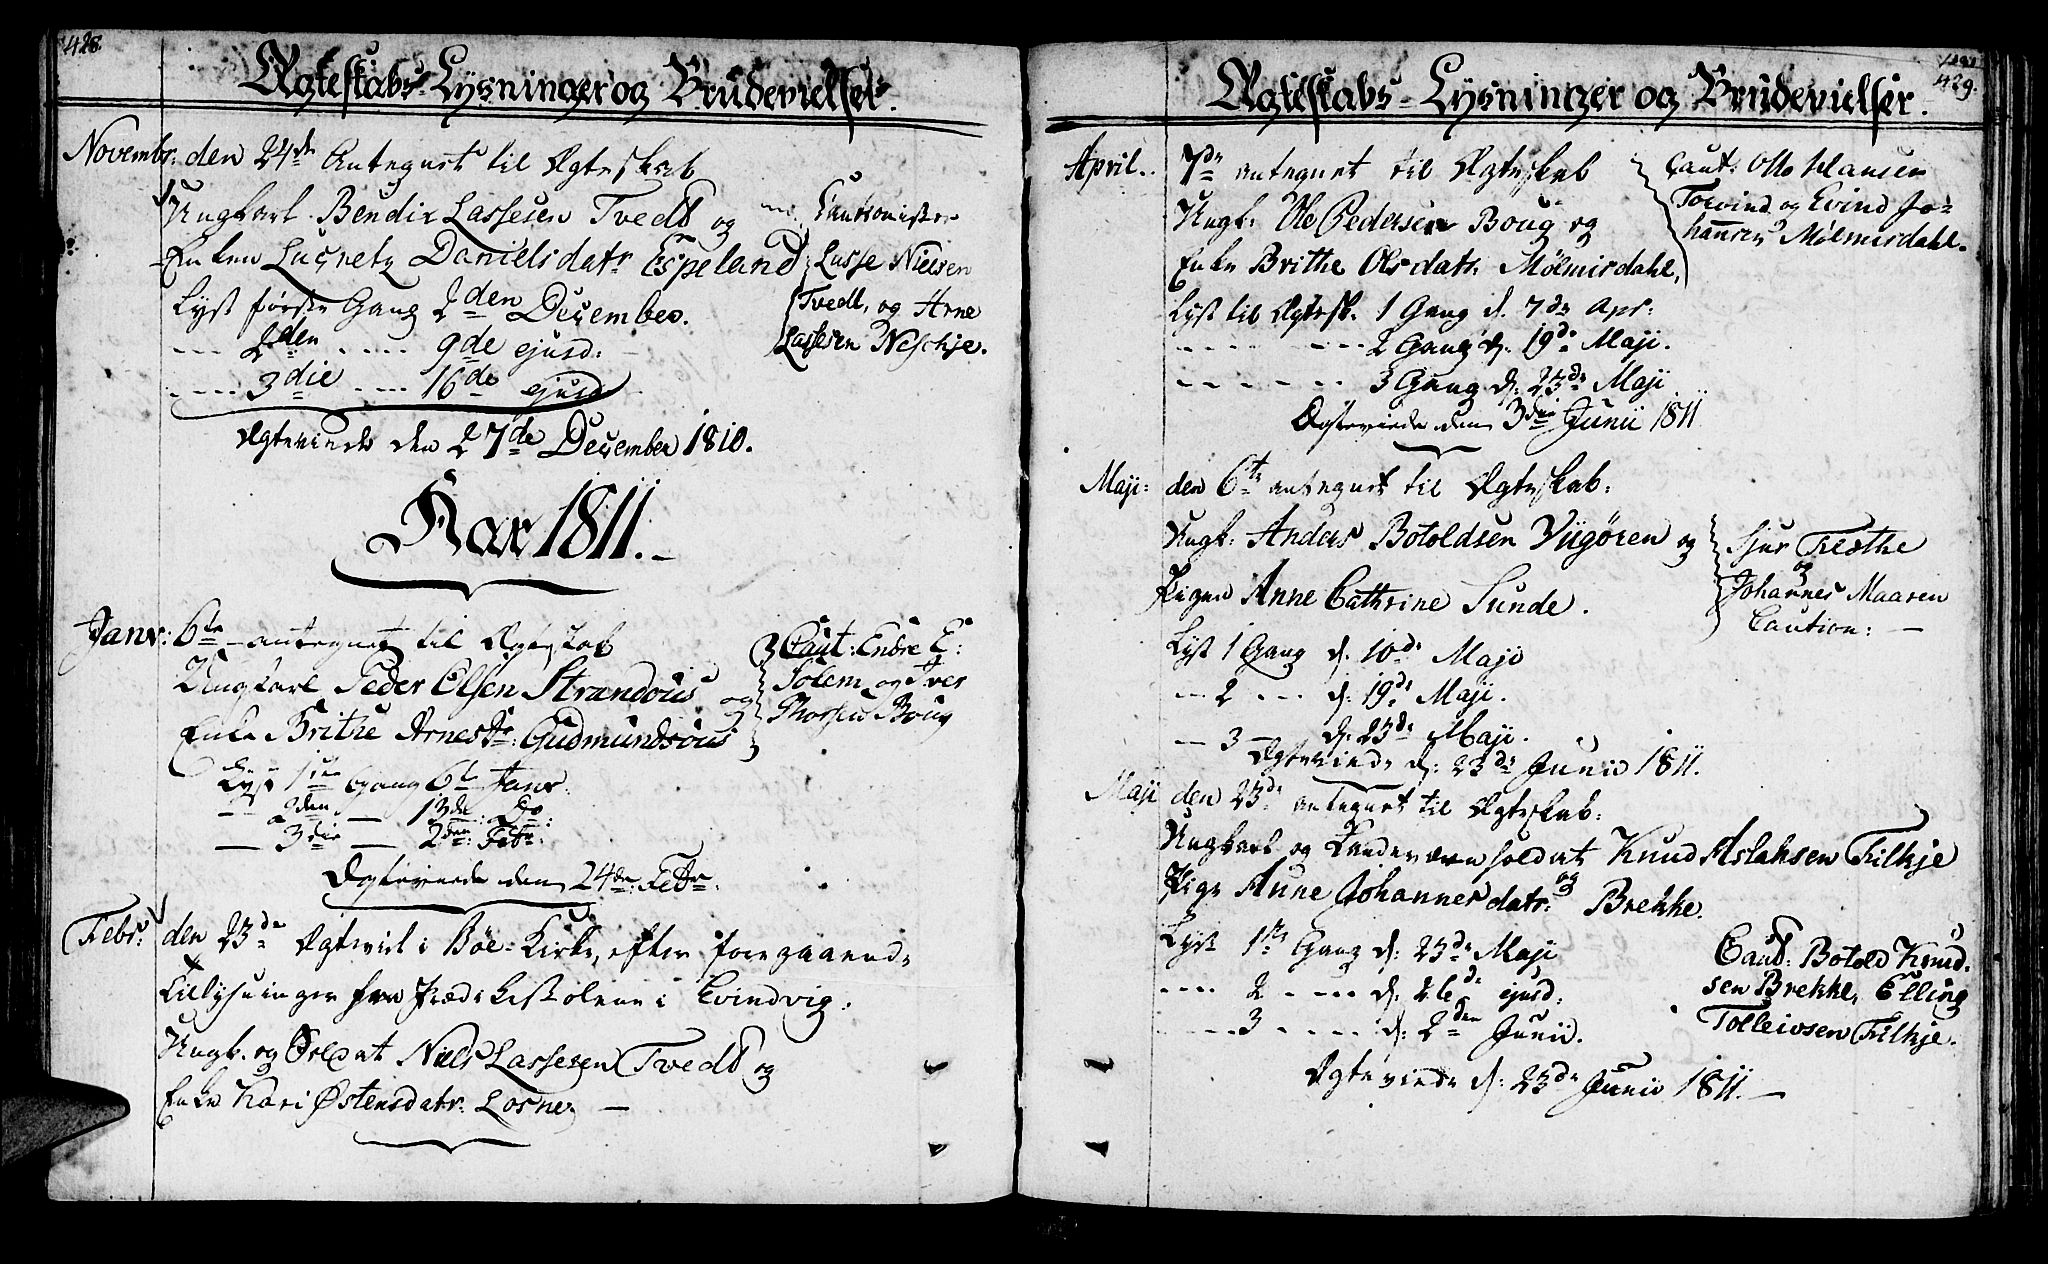 428.
Ægteskabs-Lysninger og Brudevielser.
Novembr: den 24de Antegnet til Ægteskab
Ungkarl Bendix Lassesen Tvedt og
Enken Lucretz Danielsdatr Espeland
Cautionister
Lasse Nielsen
Tvedt, og Arne
Lassesen Neschje.
Lyst første Gang 2den December.
--- 2den ---- 9de ejusd:
---- 3die ---- 16de ejusd
Ægteviede den 27de December 1810.
Aar 1811.
Janr: 6te antegnet til Ægteskab
Ungkarl Peder Elsen Strandous og
Enke Brithe Arnesdr: Gudmundsous
Caut: Endre E:
Solem og Iver
Thorsen Boug
Lyst 1ste Gang 6te Janr.
— 2den — 13de: Do:
— 3die — 2den: Febr.
Ægteviede den 24de: Febr.
Febr: den 23de Ægteviet i Böe-Kirke, efter foregaaende
Tillysninger fra Prædikestolene i Evindvig:
Ungk. og Soldat Niels Lassesen Tvedt og
Enke Kari Østensdatr. Losne. —
429.
Ægteskabs-Lysninger og Brudevielser.
April. 7de antegnet til Ægteskab
Ungk: Ole Pedersen Boug og
Enke Brithe Olsdatr. Mølmisdahl,
Caut: Otto Hansen
Torvind og Evind Jo-
hannesen Mølmisdahl.
Lyst til Ægtesk. 1 Gang d. 7de Apr:
--- 2 Gang d: 19de Maji.
--- 3 Gang d: 23de Maji
Ægteviede den 3die Junii 1811
Maji: den 6te antegnet til Ægteskab:
Ungk: Anders Botoldsen Viigøren og
Pigen Anne Cathrine Sunde.
Sjur Træthe
og
Johannes Maaren
Caution: —
Lyst 1 Gang d. 10de Maji
— 2 --- d: 19de Maji.
— 3 — d: 23de Maji.
Ægteviede d: 23de Junii 1811.
Maji den 23de antegnet til Ægteskab:
Ungkarl og Landeværnsoldat Knud Aslaksen Filkje
og
Pige Anne Johannesdatr: Brekke.
Lyst 1ste Gang d: 23de Maji
---- 2 ---- d: 26de ejusd:
---- 3 ----- d: 2den Junii.
Caut: Botold Knud-
sen Brekke, Elling
Tolleivsen Filkje.
Ægteviede d: 23de Junii 1811. —